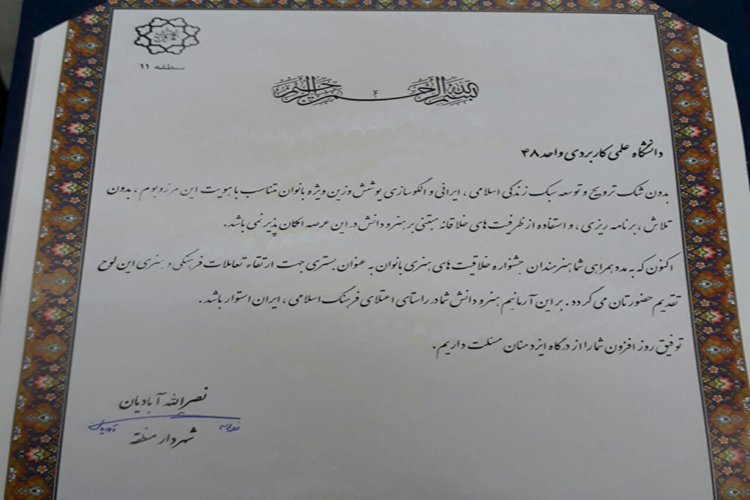 منطقه ۱۱
بسم الله الرحمن الرحیم
دانشگاه علمی کاربردی واحد ۴۸
بدون شک ترویج و توسعه سبک زندگی اسلامی ، ایرانی و الگوسازی پوشش وزین ویژه بانوان متناسب با هویت این مرز و بوم ، بدون
تلاش ، برنامه ریزی ، و استفاده از ظرفیت های خلاقانه مبتنی بر هنر و دانش در این عرصه امکان پذیر نمی باشد .
اکنون که به مدد همراهی شما هنرمندان جشنواره خلاقیت های هنری بانوان به عنوان بستری جهت ارتقاء تعاملات فرهنگی و هنری این لوح
تقدیم حضورتان می گردد . بر این آرمانیم هنر و دانش شما در راستای اعتلای فرهنگ اسلامی ، ایران استوار باشد .
توفیق روز افزون شما را از درگاه ایزد منان مسئلت داریم .
نصرالله آبادیان
شهردار منطقه